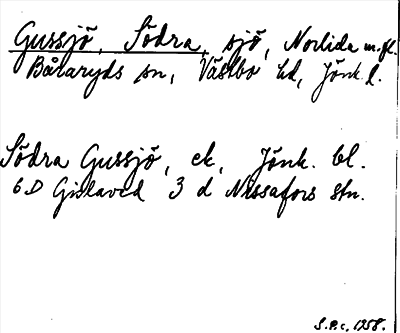 Gussjö, Södra, sjö, Norlida m.fl.
Båraryds sn, Västbo hd, Jönk. l.
Södra Gussjö, ek, Jönk. bl.
6D Gislaved 3 d Nissafors stn.
S.P.c. 1258.